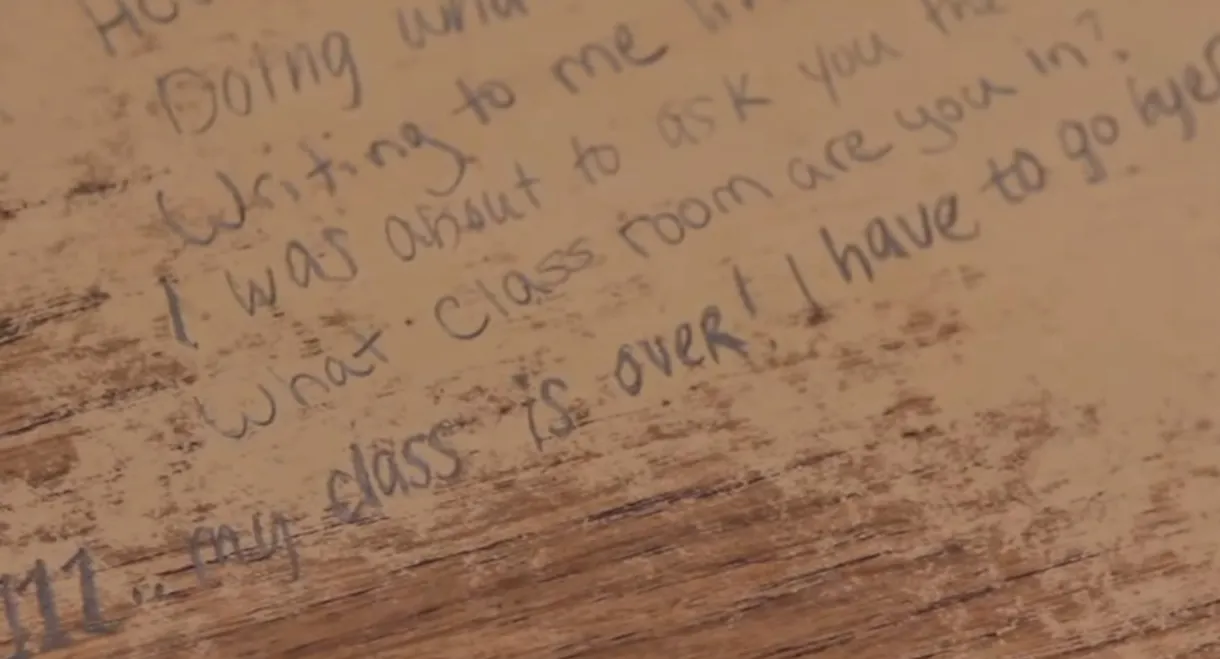 Doing
Writing to me
I was about to ask you the
What class room are you in?
my class is over! I have to go bye